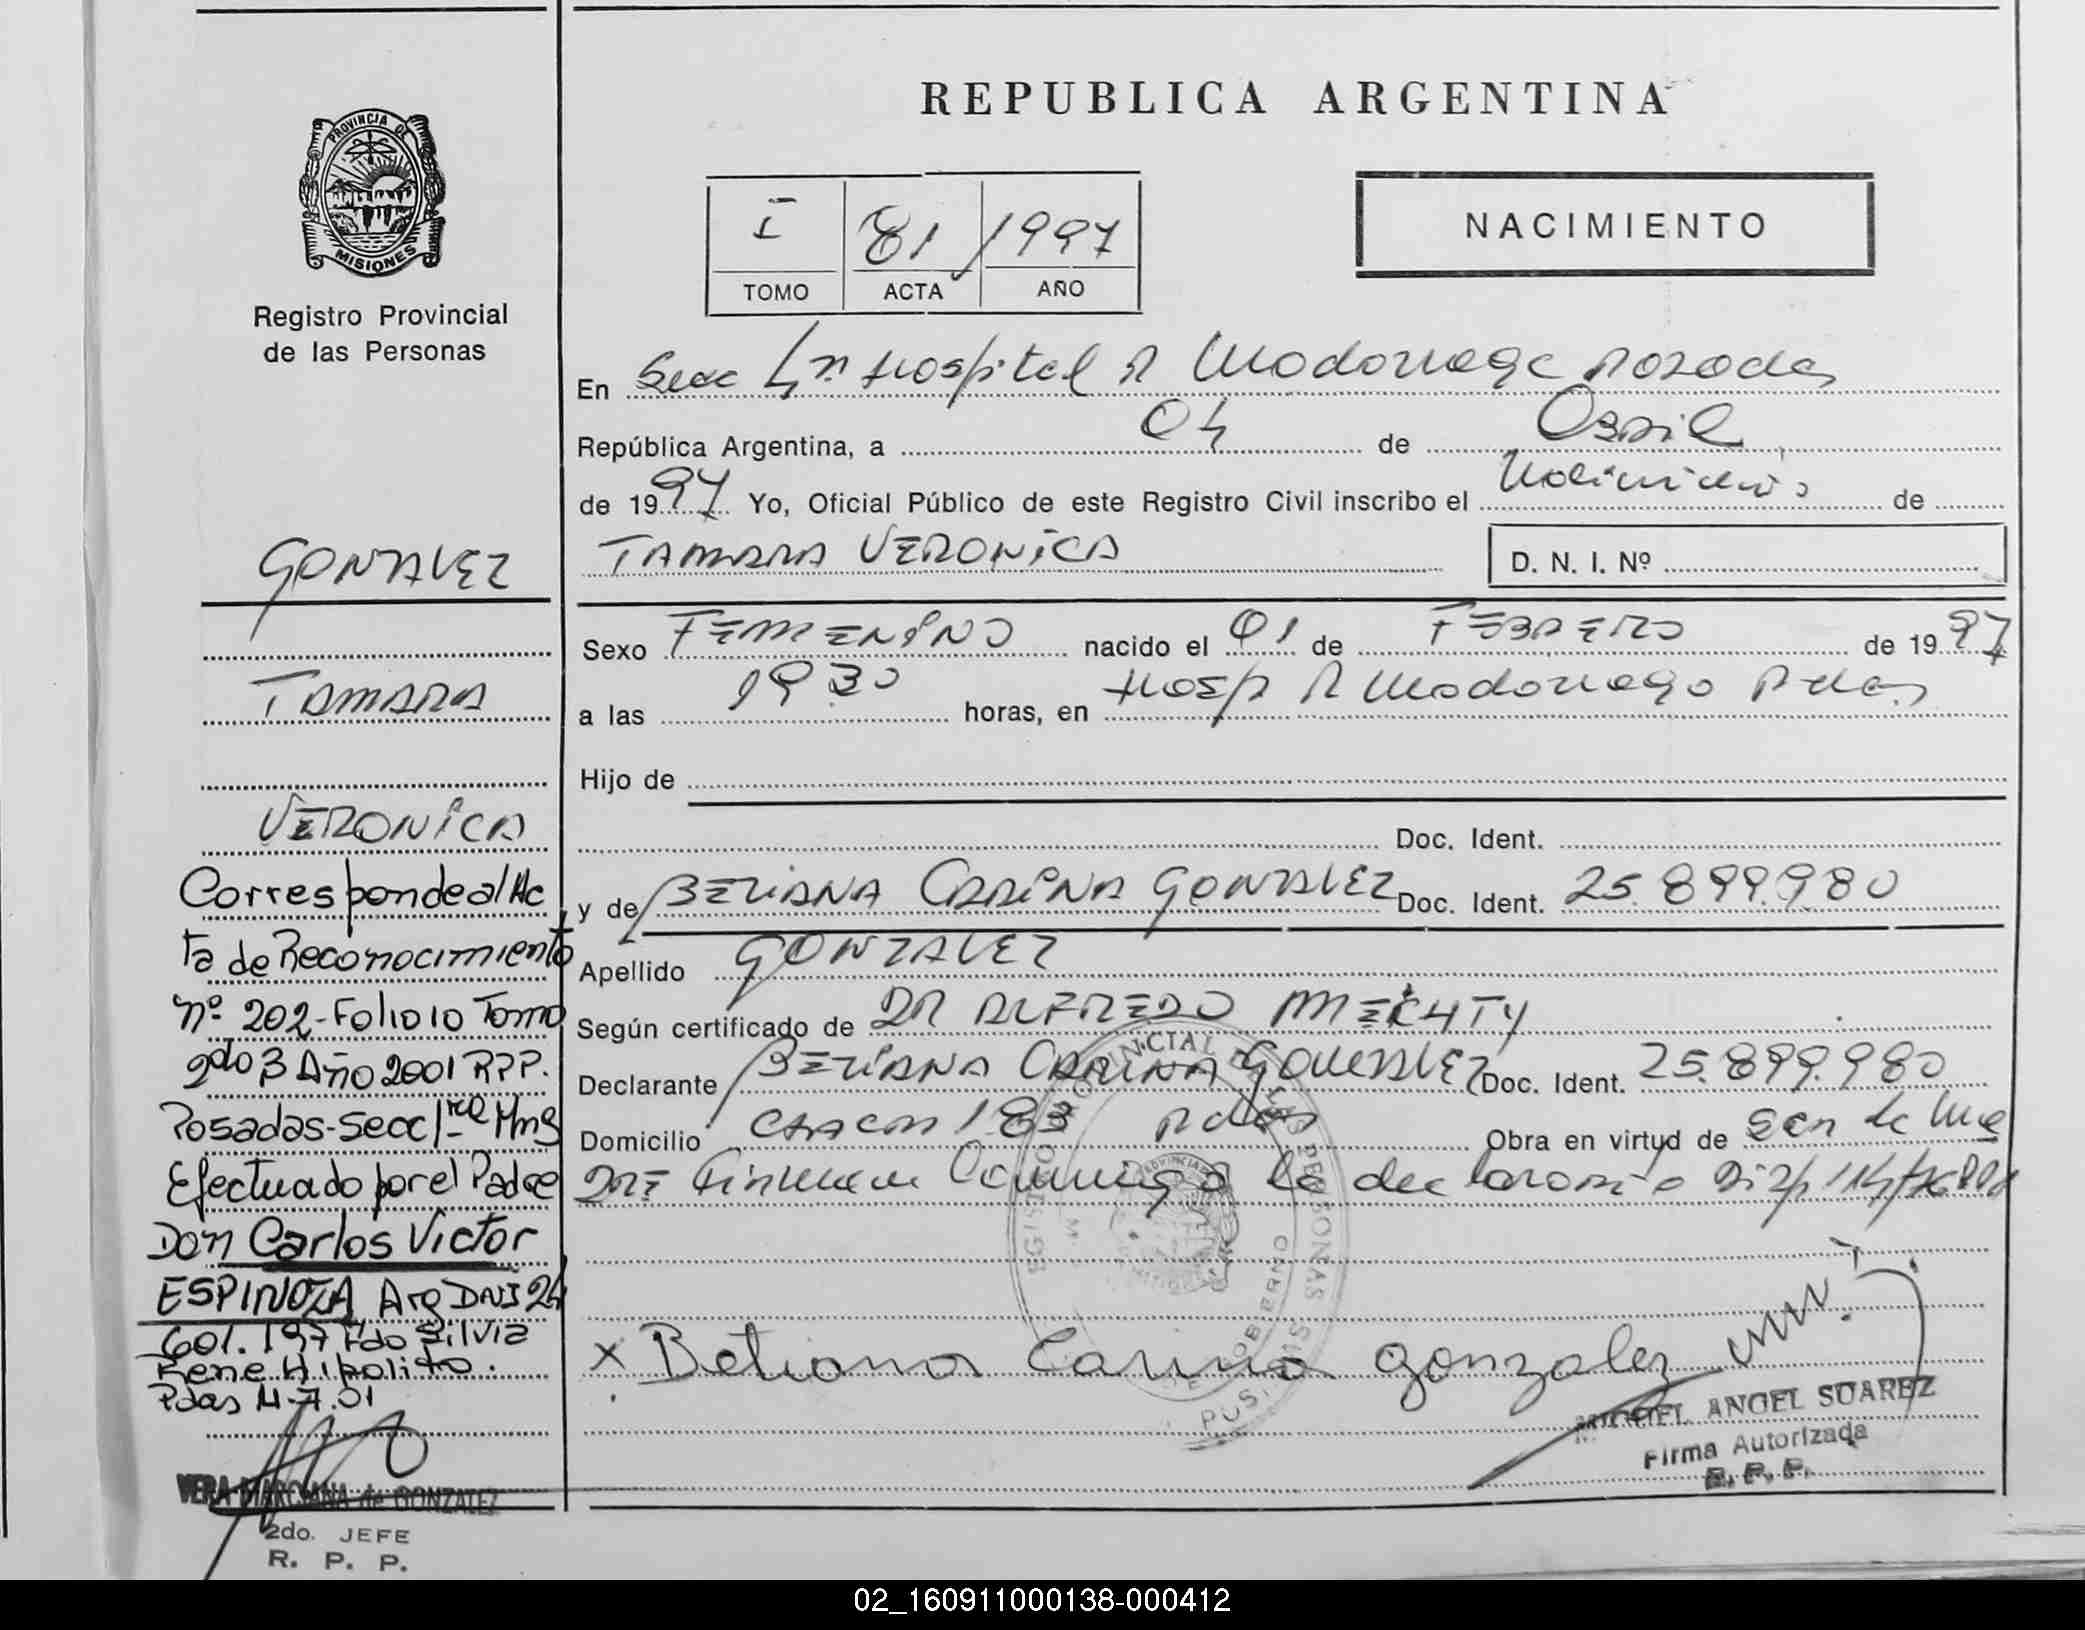 REPUBLICA ARGENTINA
PROVINCIA DE
MISIONES
Registro Provincial
de las Personas
I 81 / 1997
TOMO ACTA AÑO
NACIMIENTO
En Secc Hospital R Madariaga Posadas
República Argentina, a 04 de Abril
de 1997 Yo, Oficial Público de este Registro Civil inscribo el Nacimiento de
TAMARA VERONICA
D. N. I. Nº
Sexo FEMENINO nacido el 01 de FEBRERO de 1997
a las 1930 horas, en Hosp R Madariaga Pdas
Hijo de
Doc. Ident.
y de BETIANA CARINA GONZALEZ Doc. Ident. 25.899.980
Apellido GONZALEZ
Según certificado de DR ALFREDO
Declarante BETIANA CARINA GONZALEZ Doc. Ident. 25.899.980
Domicilio CHACO 183 Pdas Obra en virtud de ser la Ma
DRE Firman Conmigo la declarante
x Betiana Carina gonzalez
MIGUEL ANGEL SUAREZ
Firma Autorizada
R. P. P.
GONZALEZ
TAMARA
VERONICA
Corresponde al Ac
ta de Reconocimiento
nº 202-Folio 10 Tomo
2do B Año 2001 RPP.
Posadas-Secc 1ra Mns
Efectuado por el Padre
Don Carlos Victor
ESPINOZA Arg DNI 24
601.197 Fdo Silvia
Rene Hipolito.
Pdas 11-7.01
VERA MARCIANA de GONZALEZ
2do. JEFE
R. P. P.
02_160911000138-000412